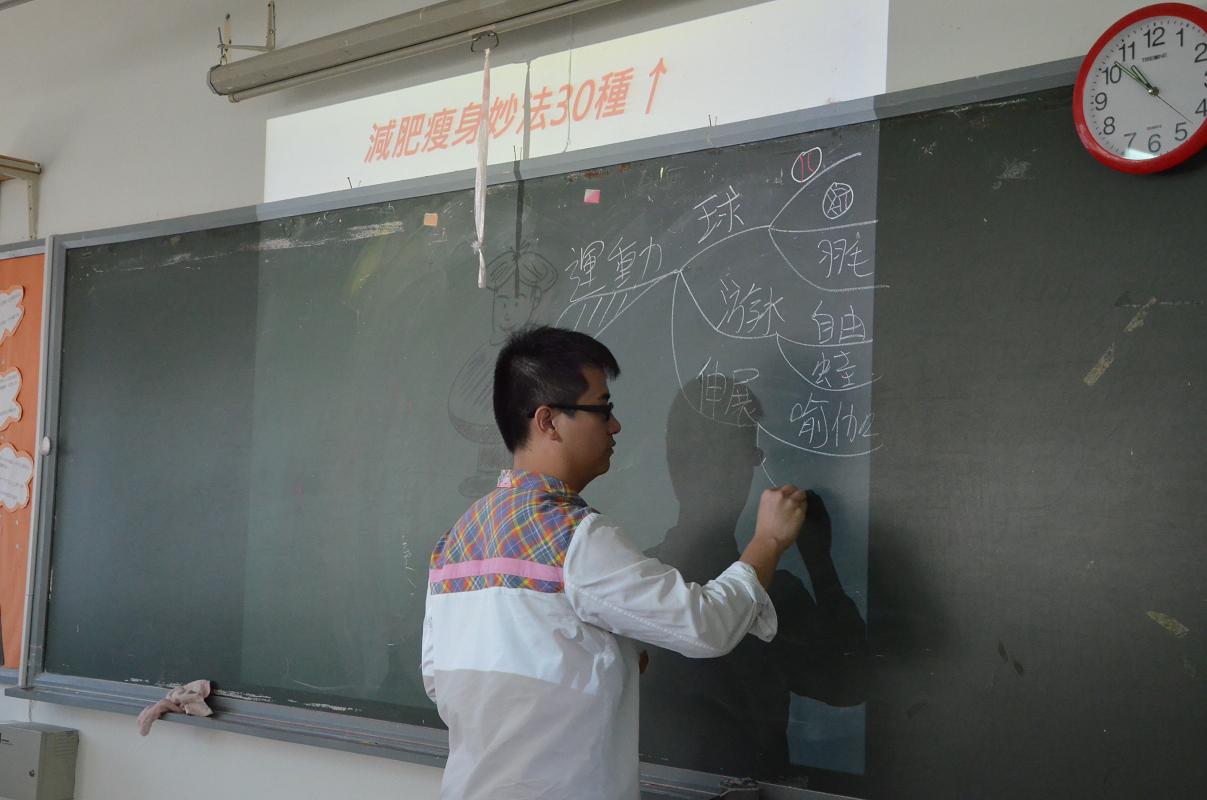 減肥瘦身妙法30種↑
運動
球
羽毛
游水
自由
蛙
伸展
瑜伽
12
1
2
3
4
5
6
7
8
9
10
11